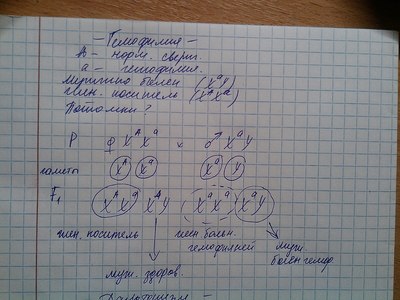 — Гемофилия —
A — норм. сверт.
a — гемофилия.
мужчина болен (XᵃY)
жен. носитель (XᴬXᵃ)
Потомки?
P ♀ XᴬXᵃ × ♂ XᵃY
гаметы Xᴬ Xᵃ Xᵃ Y
F₁ XᴬXᵃ XᴬY XᵃXᵃ XᵃY
жен. носитель жен больн. гемофилией муж. болен гемоф
муж. здоров.